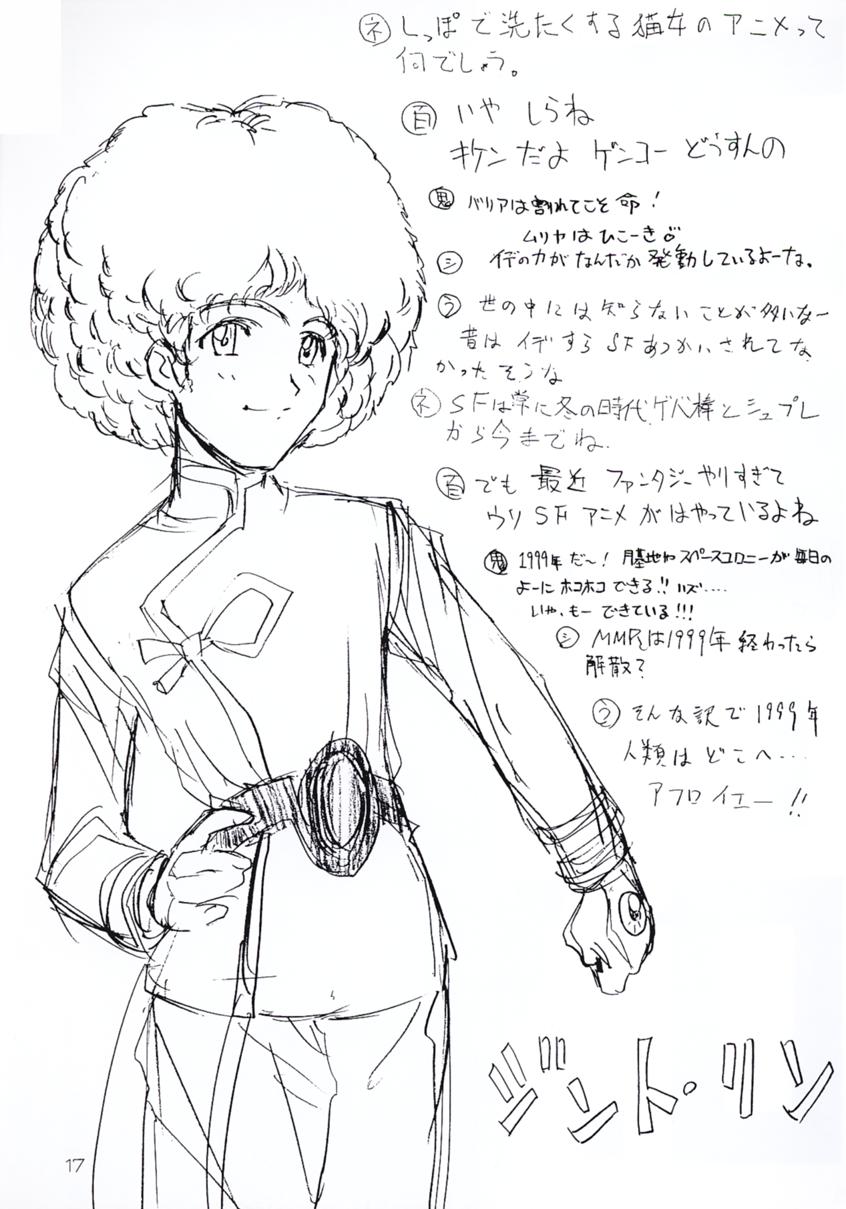 ネ しっぽで洗たくする猫女のアニメって
何でしょう。
百 いや しらね
キケンだよ ゲンコー どうすんの
鬼 バリアは割れてこそ命！
ムリヤはひこーき♂
シ イデの力がなんだか発動しているよーな。
う 世の中には知らないことが多いなー
昔は イデすら SFあつかいされてな
かったそうな
ネ SFは常に冬の時代、ゲバ棒とシュプレ
から今までね
百 でも 最近 ファンタジーやりすぎて
ウソSFアニメがはやっているよね
鬼 1999年だ〜！ 月基地やスペースコロニーが毎日の
よーにホコホコできる!! ハズ....
いや、もー できている!!!
シ MMRは1999年 終わったら
解散？
う そんな訳で1999年
人類は どこへ・・・
アフロ イエー!!
ジント・リン
17